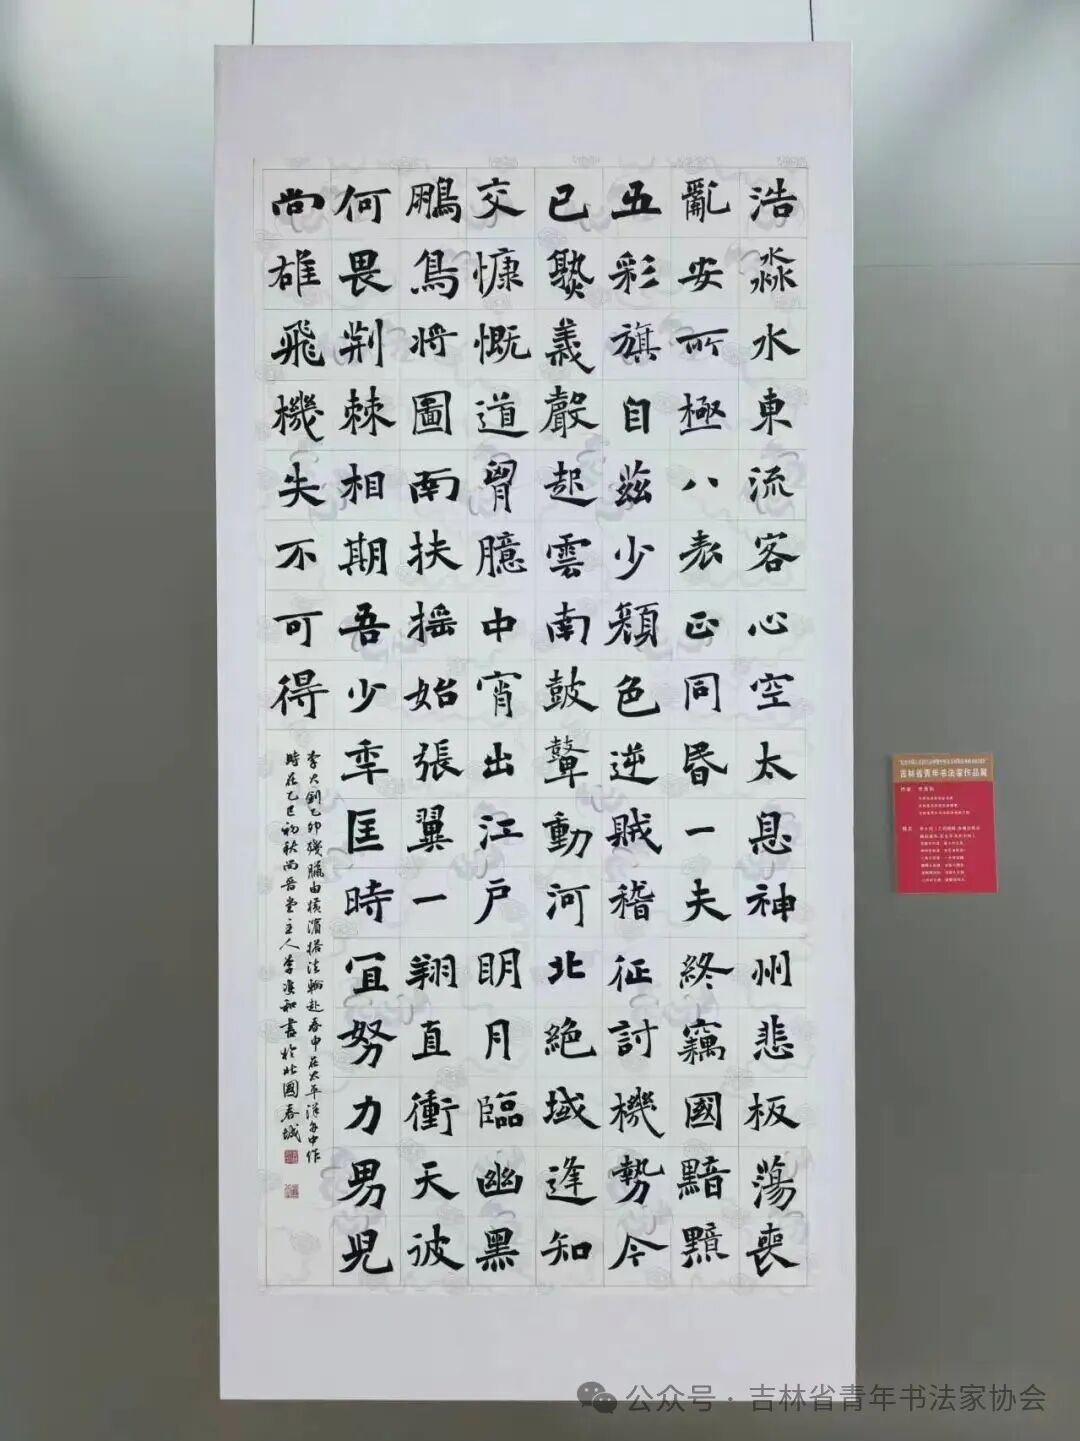 浩淼水東流客心空太息神州悲板蕩喪
亂安所極八表正同昏一夫終竊國黯黮
五彩旗自茲少顏色逆賊稽征討機勢今
已熟義聲起雲南鼓鼙動河北絕域逢知
交慷慨道胷臆中宵出江戶明月臨幽黑
鵬鳥將圖南扶搖始張翼一翔直衝天彼
何畏荆棘相期吾少年匡時宜努力男兒
尚雄飛機失不可得
李大釗乙卯殘臘由橫濱搭法輪赴春申在太平洋舟中作
時在乙巳初秋尚吾堂主人李海和書於北國春城
吉林省青年书法家作品展
公众号 · 吉林省青年书法家协会